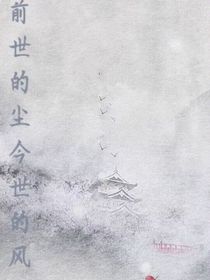 前世的尘今世的风